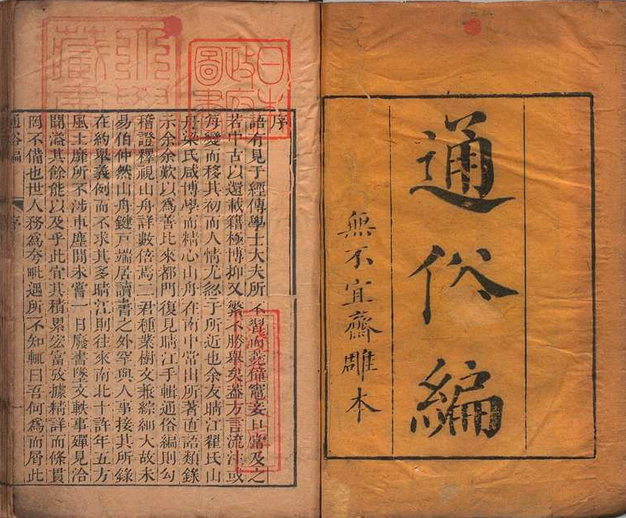 通俗編
無不宜齋雕本
日本
政府
圖書
序
語有見于經傳學士大夫所不習而蕘僮竈妾口常及之
若中古以還載籍極博抑又繁不勝舉矣蓋方言流注或
每變而移其初而人情尤忽于所近也余友晴江翟氏山
舟梁氏咸博學而精心山舟在南中嘗出所著直語類錄
示余余歎以爲善比來都門復見晴江手輯通俗編則勾
稽證釋視山舟詳數倍焉二君種業樹文兼綜細大故未
易伯仲然山舟鍵戸端居讀書之外罕與人事接其所錄
在約舉義例而不求其多晴江則往來南北十許年五方
風土靡所不涉車塵間未嘗一日廢書墜文軼事殫見洽
聞溢其餘能以及乎此宜其積累宏富攷據精詳而條貫
罔不備也世人務爲夸毗遇所不知輒曰吾何爲而屑此
通俗編 序